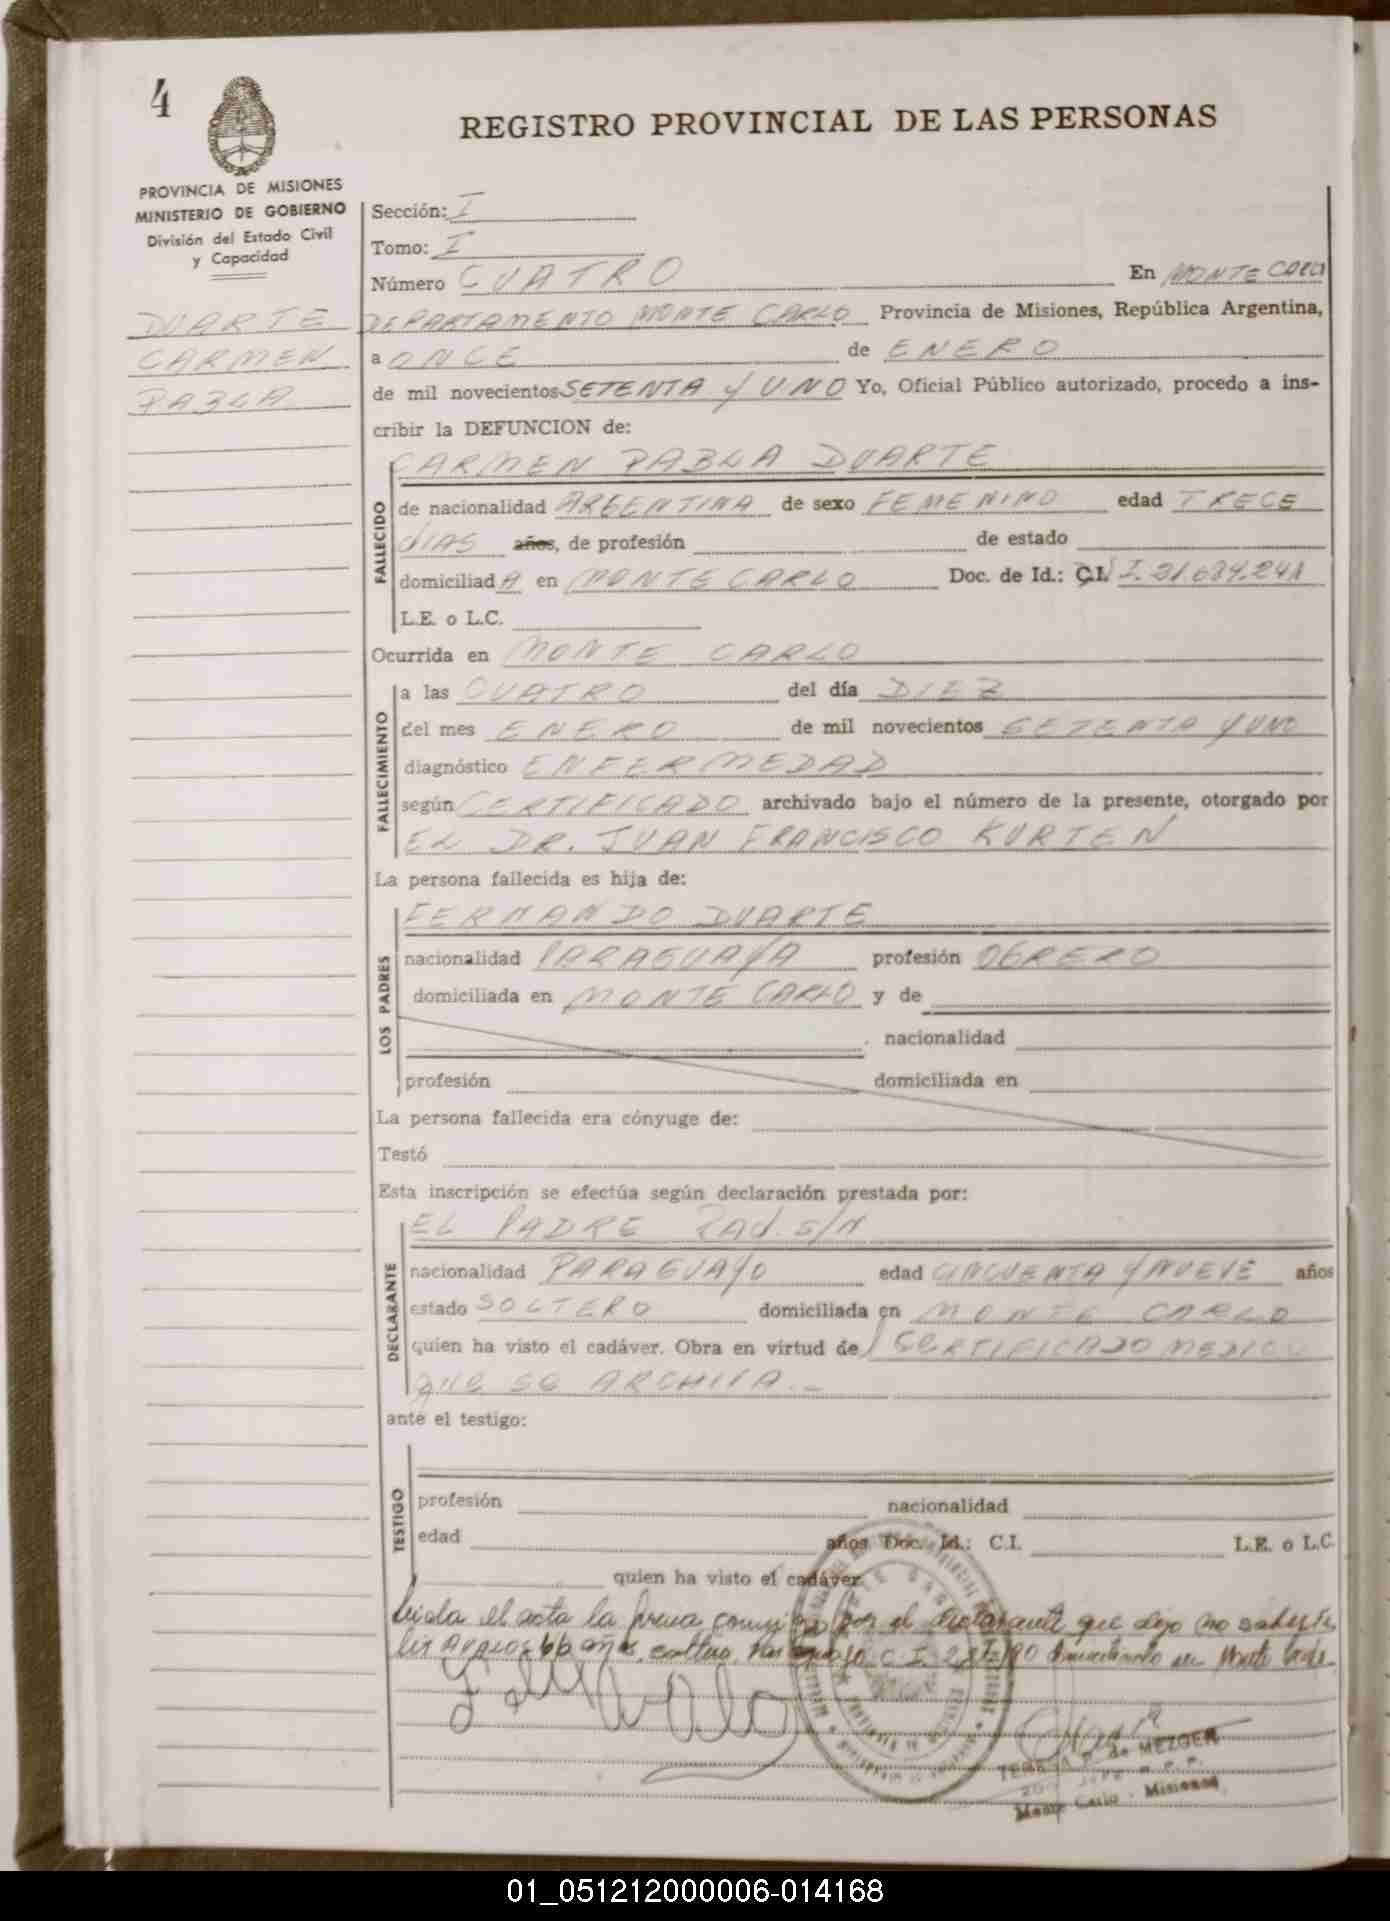 4
REGISTRO PROVINCIAL DE LAS PERSONAS
PROVINCIA DE MISIONES
MINISTERIO DE GOBIERNO
División del Estado Civil
y Capacidad
DUARTE
CARMEN
PABLA
Sección: I
Tomo: I
Número CUATRO En MONTE CARLO
DEPARTAMENTO MONTE CARLO Provincia de Misiones, República Argentina,
a ONCE de ENERO
de mil novecientos SETENTA Y UNO Yo, Oficial Público autorizado, procedo a ins-
cribir la DEFUNCION de:
CARMEN PABLA DUARTE
FALLECIDO
de nacionalidad ARGENTINA de sexo FEMENINO edad TRECE
DIAS años, de profesión de estado
domiciliadA en MONTE CARLO Doc. de Id.: C.I. I. 21.684.241
L.E. o L.C.
Ocurrida en MONTE CARLO
FALLECIMIENTO
a las CUATRO del día DIEZ
del mes ENERO de mil novecientos SETENTA Y UNO
diagnóstico ENFERMEDAD
según CERTIFICADO archivado bajo el número de la presente, otorgado por
EL DR. JUAN FRANCISCO KURTEN
La persona fallecida es hija de:
FERNANDO DUARTE
LOS PADRES
nacionalidad PARAGUAYA profesión OBRERO
domiciliada en MONTE CARLO y de
nacionalidad
profesión domiciliada en
La persona fallecida era cónyuge de:
Testó
Esta inscripción se efectúa según declaración prestada por:
EL PADRE RAD. S/N
DECLARANTE
nacionalidad PARAGUAYO edad CINCUENTA Y NUEVE años
estado SOLTERO domiciliada en MONTE CARLO
quien ha visto el cadáver. Obra en virtud de CERTIFICADO MEDICO
QUE SE ARCHIVA.-
ante el testigo:
TESTIGO
profesión nacionalidad
edad años Doc. Id.: C.I. L.E. o L.C.
quien ha visto el cadáver.
Leida el acta la firma conmigo por el declarante que dijo no saber
años, soltero, C.I. domiciliado en Monte Carlo.
TERESA de MEZGER
Monte Carlo - Misiones
01_051212000006-014168